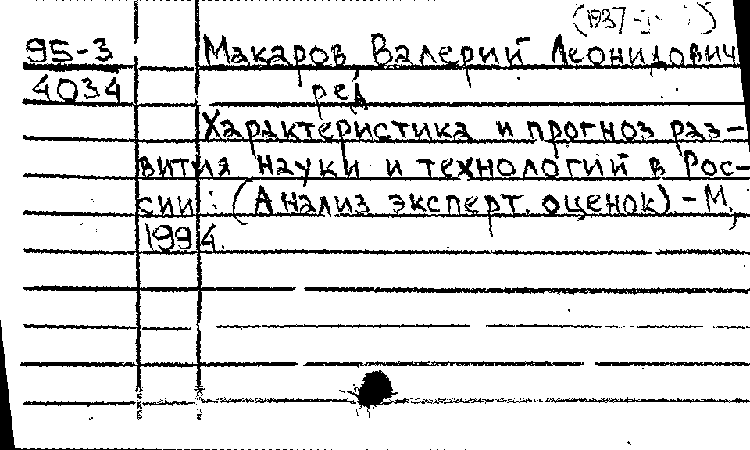 (1937-
95-3 Макаров, Валерий Леонидович
4034 ред.
Характеристика и прогноз раз-
вития науки и технологий в Рос-
сии: (Анализ эксперт. оценок) - М.,
1994.